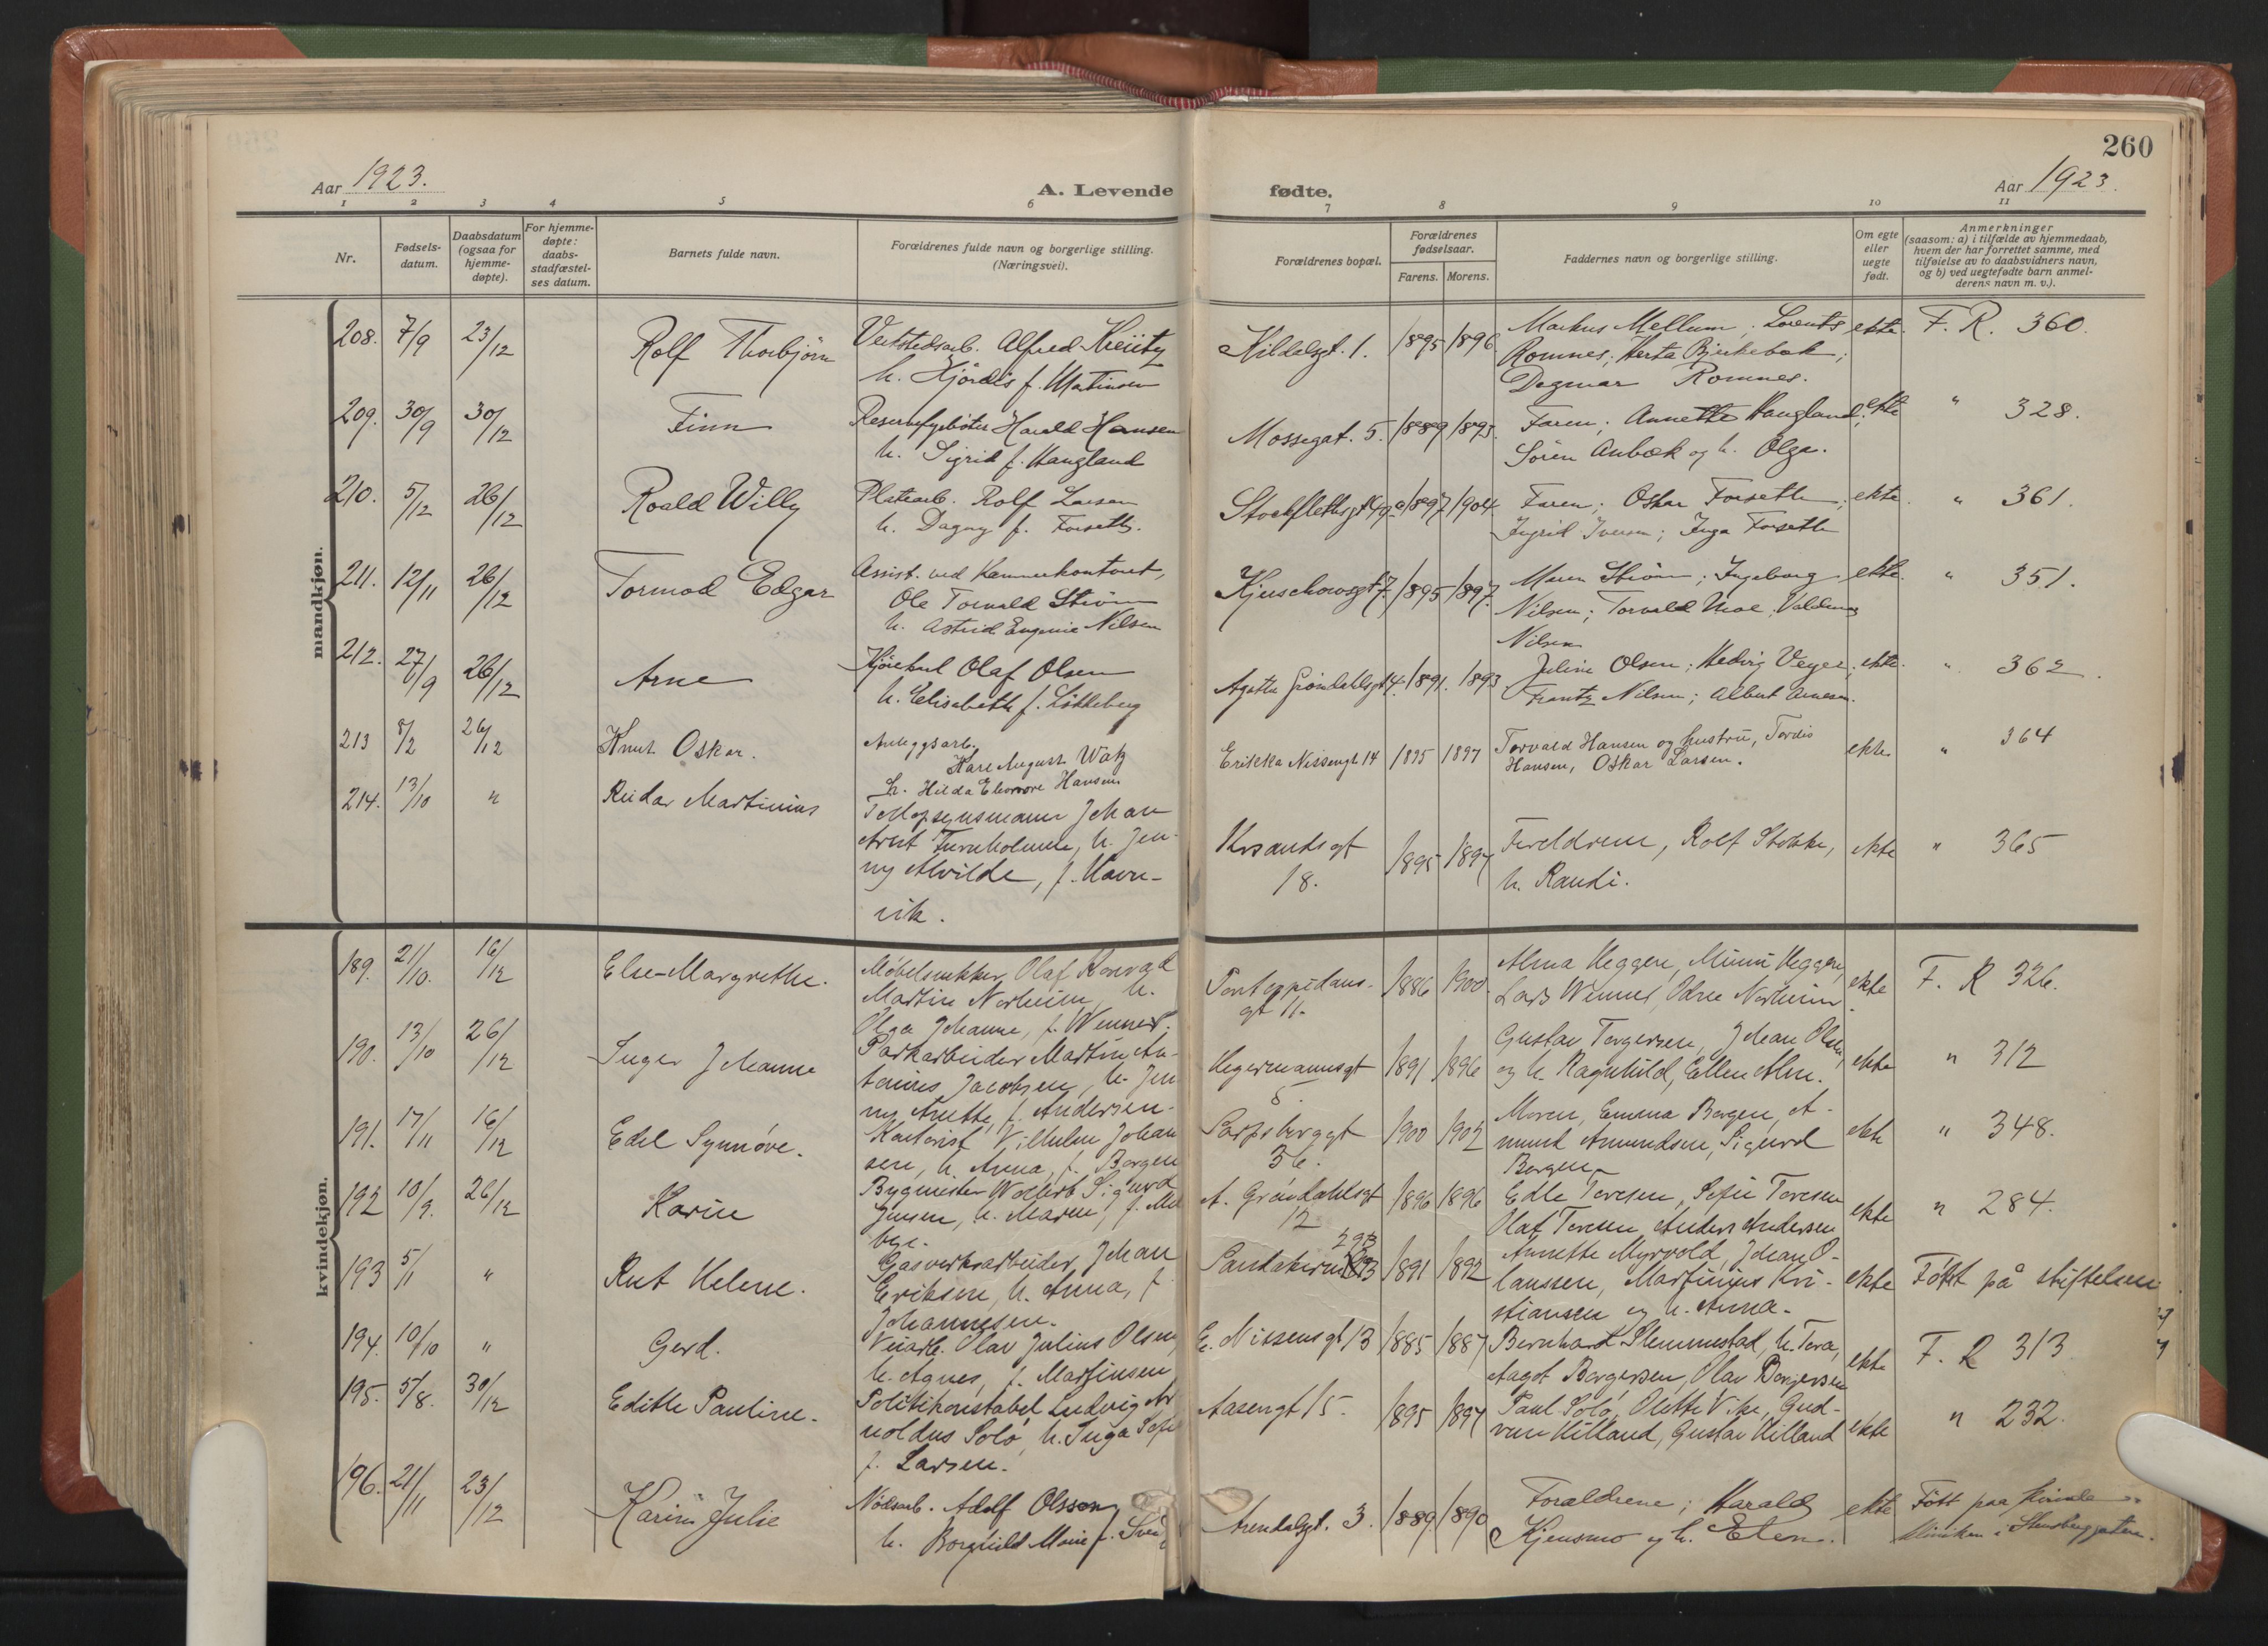 260
Aar 1923.
A. Levende fødte.
Aar 1923.
1 2 3 4 5 6 7 8 9 10 11
Nr.
Fødselsdatum.
Daabsdatum (ogsaa for hjemmedøpte).
For hjemmedøpte: daabsstadfæstelses datum.
Barnets fulde navn.
Forældrenes fulde navn og borgerlige stilling. (Næringsvei).
Forældrenes bopæl.
Forældrenes fødselsaar.
Farens. Morens.
Faddernes navn og borgerlige stilling.
Om egte eller uegte født.
Anmerkninger
(saasom: a) i tilfælde av hjemmedaab,
hvem der har forrettet samme, med
tilføielse av to daabsvidners navn,
og b) ved uegtefødte barn anmel-
derens navn m. v.).
mandkjøn.
208. 7/9 23/12 Rolf Thorbjörn
Alfred
h. Hjördis f. Martinsen
1895 1896
Markus Mellum; Lorents
Romnes; Herta Bjerkebæk;
Dagmar Romnes.
ekte. F. R. 360.
209. 30/9 30/12 Finn
Harald Hansen
h. Sigrid f. Haugland
Mossegat. 5. 1889 1893.
Faren; Annette Haugland;
Sören Aubæk og h. Olga.
ekte " 328.
210. 5/12 26/12 Roald Willy
Platearb. Rolf Larsen
h. Dagny f. Forseth.
Stockflethsgt 49a 1897 1904
Faren; Oskar Forseth;
Ingrid Iversen; Inga Forseth
ekte. " 361.
211. 12/11 26/12 Tormod Edgar
Assist. ved Kemnerkontoret,
Ole Torvald Ström
h. Astrid Eugenie Nilsen
Kjerschowsgt 7. 1895 1897.
Ström; Ingeborg
Nilsen; Torvald Moe; Valdemar
Nilsen
ekte. " 351.
212. 27/9 26/12 Arne
Olaf Olsen
h. Elisabeth f. Lökkeberg
Agathe Gröndahlsgt 14. 1891. 1893
Juline Olsen; Hedvig Veger;
Frantz Nilsen; Albert Arnesen.
ekte. " 362.
213 8/2 26/12 Knut Oskar.
Anleggsarb.
Karl August Watz
h. Hilda Eleonore Hansen
Erikka Nissengt 14 1895 1897
Torvald Hansen og hustru, Tordis
Hansen, Oskar Larsen.
ekte. " 364
214. 13/10 " Reidar Martinius
Tollopsynsmann Johan
Arnt h. Jen-
ny Alvilde, f. Havn-
vik.
Krsandsgt
18.
1895 1897
Foreldrene, Rolf Stokke,
h. Randi.
ekte " 365
kvindekjøn.
189. 21/10. 16/12 Else-Margrethe.
Møbelsnekker, Olaf Konrad
Martin Norheim, h.
Olga Johanne, f. Wenner.
Pontoppidans-
gt 11.
1886 1900.
Alma Heggen, Minni Heggen,
Lars Wenner, Norheim
ekte F. R 326.
190. 13/10 26/12 Inger Johanne
Parkarbeider Martin An-
tonius Jacobsen, h. Jen
ny Anette, f. Andersen.
Hegermannsgt
5.
1891 1896
Gustav Torgersen, Johan Olsen,
og h. Ragnhild, Ellen Alm.
ekte " 312
191. 17/11 16/12 Edel Synnøve.
Kontorist Vilhelm Johan
sen, h. Anna, f. Borgen
Sarpsborggt
36.
1900 1902
Moren, Emma Borgen, A-
mund Amundsen, Sigurd
Borgen.
ekte " 348.
192 10/9. 26/12 Karin
Bygmester Sigurd
Jensen, h. Maren, f. Mel
bye.
A. Gröndahlsgt
12
1896 1896
Edle Toresen, Sofie Toresen
Olaf Toresen Anders Andersen
ekte " 284.
193 5/11 " Rut Helene.
Gasverksarbeider, Johan
Eriksen, h. Anna, f.
Johannesen.
293
1891 1892
Annette Myrvold, Johan O-
laussen, Martinius Kri-
stiansen og h. Anna.
ekte Fött på stiftelsen
194. 10/10 " Gerd.
Veiarb. Olav Julius Olsen,
h. Agnes, f. Martinsen
E. Nissensgt 13 1885 1887
Bernhard Slemmestad, h. Tora,
Aagot Borgersen, Olav Borgersen
ekte F. R 313
195. 5/8. 30/12 Edith Pauline.
Politikonstabel Ludvig Ar
noldus Solö, h. Inga Sofie
f. Larsen.
Aasengt 15. 1895 1897
Paul Solö, Olette Vike, Gud-
run Hilland, Gustav Hilland
ekte " 232.
196. 21/11 23/12 Karin Julie
Nödsarb. Adolf Olsson
h. Borghild Marie f.
Arendalsgt. 3. 1889 1890
Forældrene; Harald
Kjensmo og h. Elen.
ekte Fött paa kvinde-
kliniken i Stensberggaten.